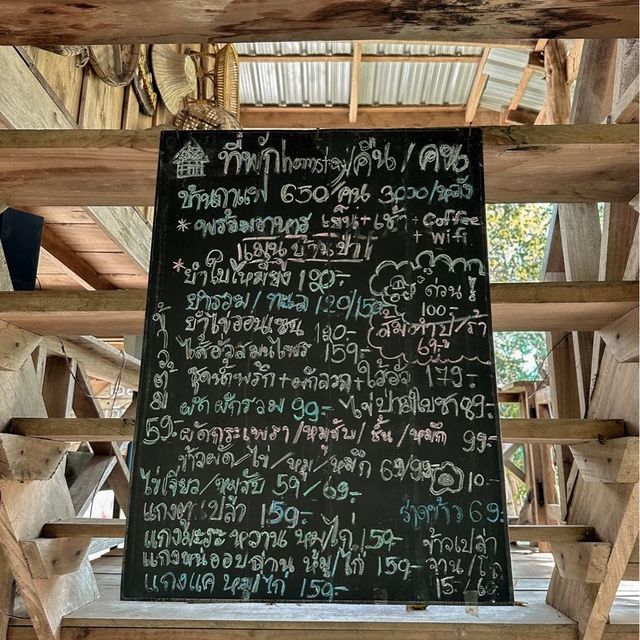 ที่พัก homstay/คืน / คน
บ้านกาแฟ 650/คน 3000/หลัง
* พร้อมอาหาร เย็น + เช้า + Coffee + Wifi
เมนูบ้านป่า
* ยำใบเหมี้ยง 120.-
ยำรวม / ทะเล 120/150
ด่วน!
100.-
ยำไข่ออนเซน 120.-
ส้มตำปู/ร้า
69.-
ไส้อั่วสมุนไพร 159.-
ชุดน้ำพริก + ผักลวก + ไส้อั่ว 179.-
ข้าวต้ม 59.-
ผัดผักรวม 99.- ไข่ป่ามใบชา 89.-
ผัดกระเพรา / หมูสับ / ชิ้น / หมึก 99.-
ข้าวผัด / ไข่ / หมู / หมึก 69/99 10.-
ไข่เจียว / หมูสับ 59/69.-
แกง 159.- ราดข้าว 69.-
แกงมะระหวาน หมู/ไก่ 159.-
ข้าวเปล่า
แกงหน่ออบ หมู/ไก่ 159.-
จาน / โถ
แกงแค หมู/ไก่ 159.-
15.-/